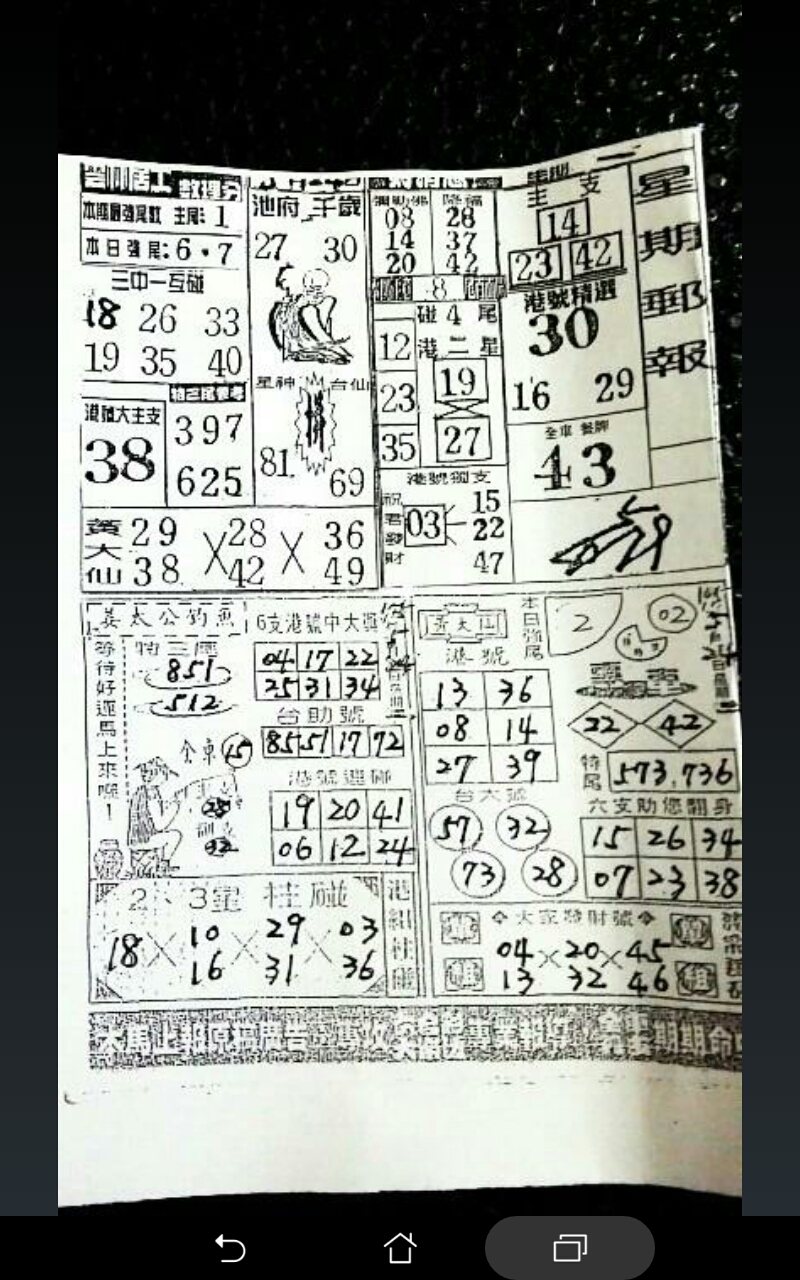 星期郵報
主支
14
23 42
港號精選
30
16 29
全車 餐牌
43
08 28
14 37
20 42
8
碰4尾
港二星
12
23
35
19
27
港號獨支
祝君發財
03
15
22
47
池府千歲
27 30
星神 台仙
81 69
主尾:1
本日強尾:6·7
三中一互碰
18 26 33
19 35 40
港號大主支
38
397
625
黃大仙
29 28 36
38 42 49
姜太公釣魚
等待好運馬上來啊!
特三尾
851
512
全車 15
28
32
6支港號中大獎
04 17 22
25 31 34
台助號
85 51 17 72
港號連碰
19 20 41
06 12 24
2、3星柱碰
18 10 29 03
16 31 36
港組柱碰
黃大仙
港號
本日強尾
2
02
13 36
08 14
27 39
22 42
特尾
573,736
台大號
57 32
73 28
六支助您翻身
15 26 34
07 23 38
大家發財號
04 20 45
13 32 46